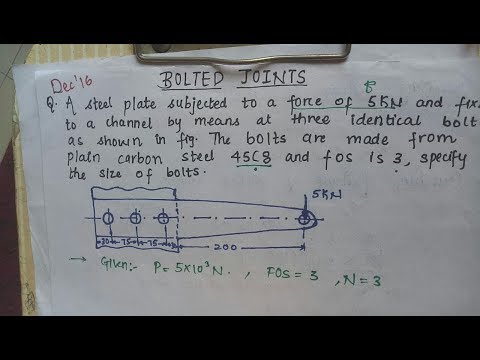 Dec'16
BOLTED JOINTS
P
Q. A steel plate subjected to a force of 5KN and fix
to a channel by means at three identical bolt
as shown in fig. The bolts are made from
plain carbon steel 45C8 and fos is 3, specify
the size of bolts.
5KN
30 75 75 200
→ Given:- P = 5×10³ N. , FOS = 3 , N = 3